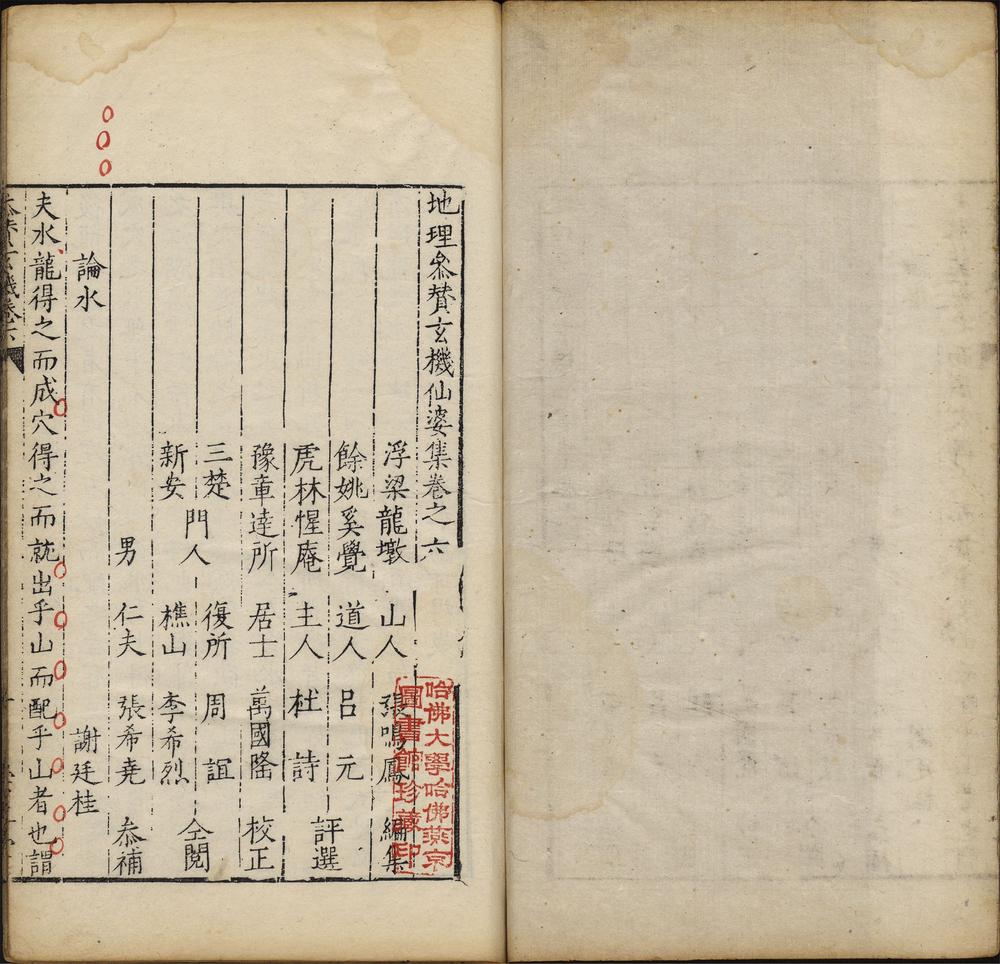 地理叅賛玄機仙婆集卷之六
浮梁龍墩 山人 張鳴鳳 編集
餘姚奚覺 道人 呂元
虎林惺庵 主人 杜詩 評選
豫章達所 居士 萬國隆 校正
三楚 復所 周誼
門人 仝閱
新安 樵山 李希烈
男 仁夫 張希堯 叅補
論水 謝廷桂
夫水龍得之而成穴得之而就出乎山而配乎山者也謂
哈佛大學哈佛燕京
圖書館珍藏印